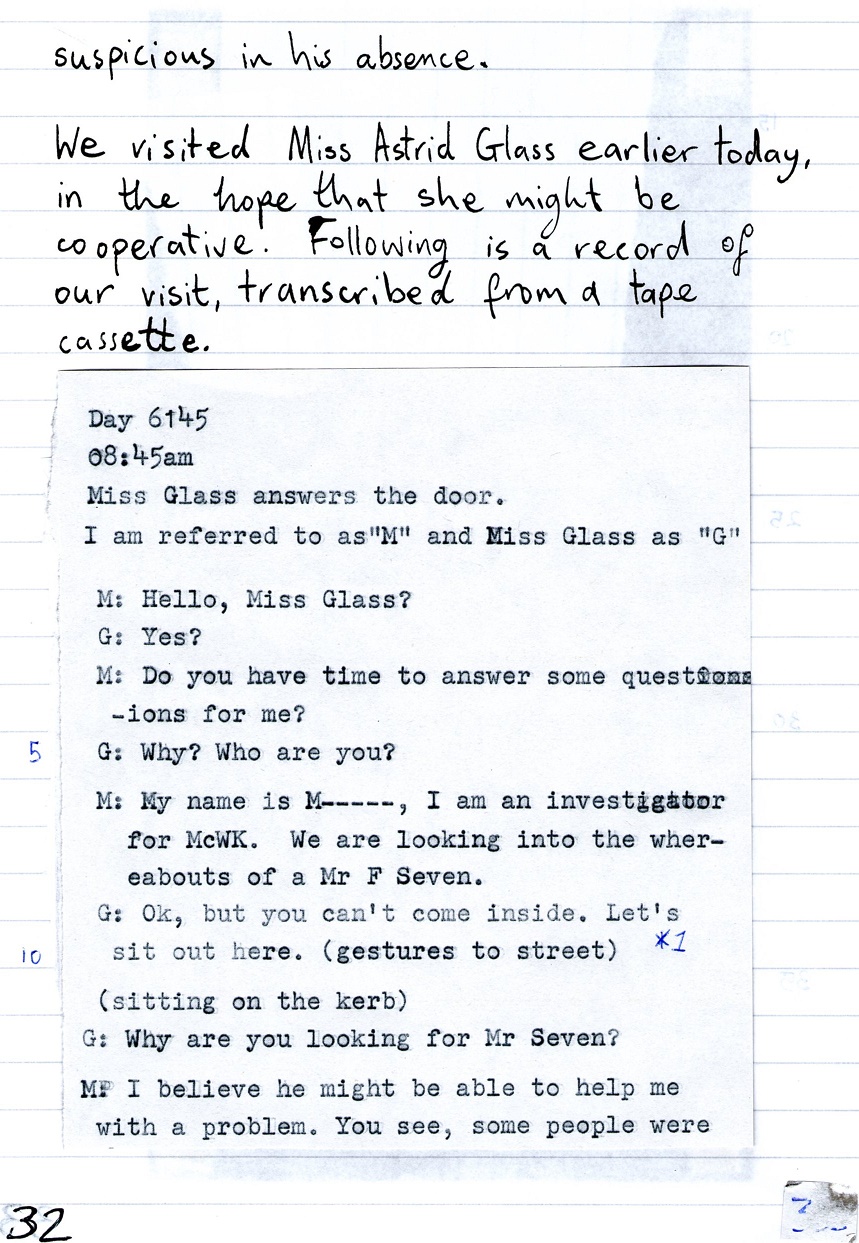 suspicious in his absence.
We visited Miss Astrid Glass earlier today,
in the hope that she might be
cooperative. Following is a record of
our visit, transcribed from a tape
cassette.
Day 6145
08:45am
Miss Glass answers the door.
I am referred to as"M" and Miss Glass as "G"
M: Hello, Miss Glass?
G: Yes?
M: Do you have time to answer some questions
-ions for me?
5 G: Why? Who are you?
M: My name is M-----, I am an investigator
for McWK. We are looking into the wher-
eabouts of a Mr F Seven.
G: Ok, but you can't come inside. Let's
10 sit out here. (gestures to street) *1
(sitting on the kerb)
G: Why are you looking for Mr Seven?
M: I believe he might be able to help me
with a problem. You see, some people were
32